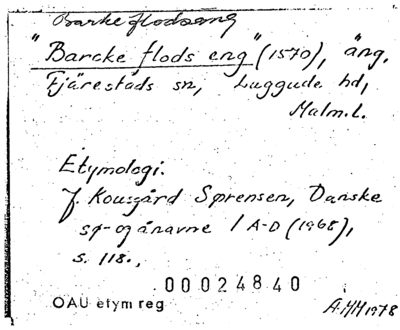 Barke flodsäng
"Barcke flods eng" (1570), äng.
Fjärestads sn, Luggude hd,
Malm.l.
Etymologi.
J. Kousgård Sørensen, Danske
sø- og ånavne 1 A-D (1968),
s. 118.,
00024840
OAU etym reg
A.HH 1978